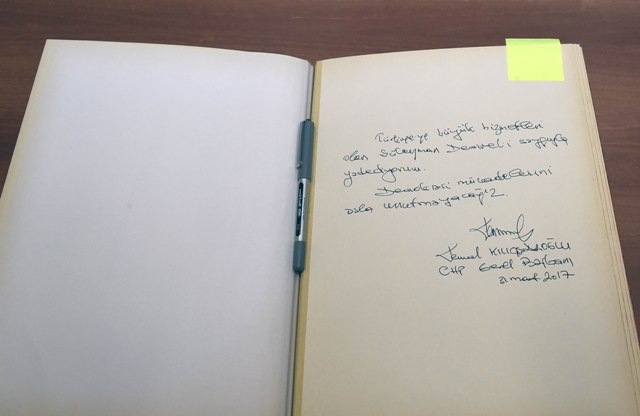 Türkiye'ye büyük hizmetleri
olan Süleyman Demirel'i saygıyla
yadediyorum.
Demokrasi mücadelesini
asla unutmayacağız.
Kemal KILIÇDAROĞLU
CHP Genel Başkanı
31 mart 2017